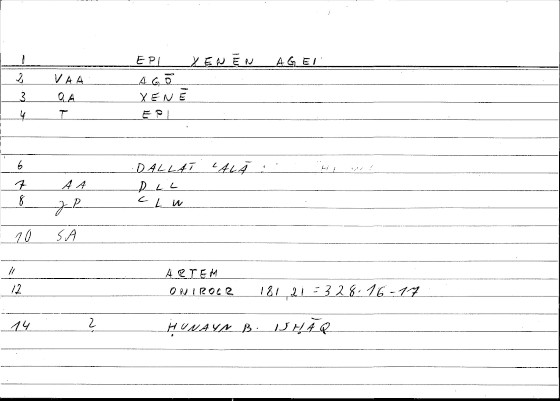 1 EPI XENĒN AGEI
2 VAA AGŌ
3 QA XENĒ
4 T EPI
6 DALLAT ʿALĀ :
7 AA DLL
8 γP ʿLW
10 SA
11 ARTEM
12 ONIROCR 181,21 = 328.16-17
14 2 ḤUNAYN B. ISḤĀQ